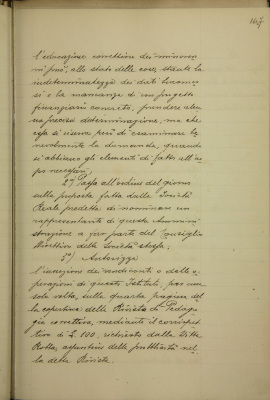 167
l'educazione correttiva dei minoren-
ni può, allo stato delle cose, stante la
indeterminatezza dei dati
si e la mancanza di un progetto
finanziario concreto, prendere alcu-
na precisa determinazione, ma che
essa si riserva però di esaminare be-
nevolmente la domanda, quando
si abbiano gli elementi di fatto all'uo-
po necessari;
2°) Passa all'ordine del giorno
sulla proposta fatta dalla Società
Reale predetta di nominare un
rappresentante di questa Ammini-
strazione a far parte del Consiglio
Direttivo della Società stessa;
3°) Autorizza
l'inserzione dei rendiconti e delle o-
perazioni di questo Istituto, per una
sola volta, sulla quarta pagina del-
la copertina della Rivista di Pedago-
gia correttiva, mediante il corrispet-
tivo di L. 100, richiesto dalla Ditta
Rotta, assuntrice della pubblicità nel-
la detta Rivista.